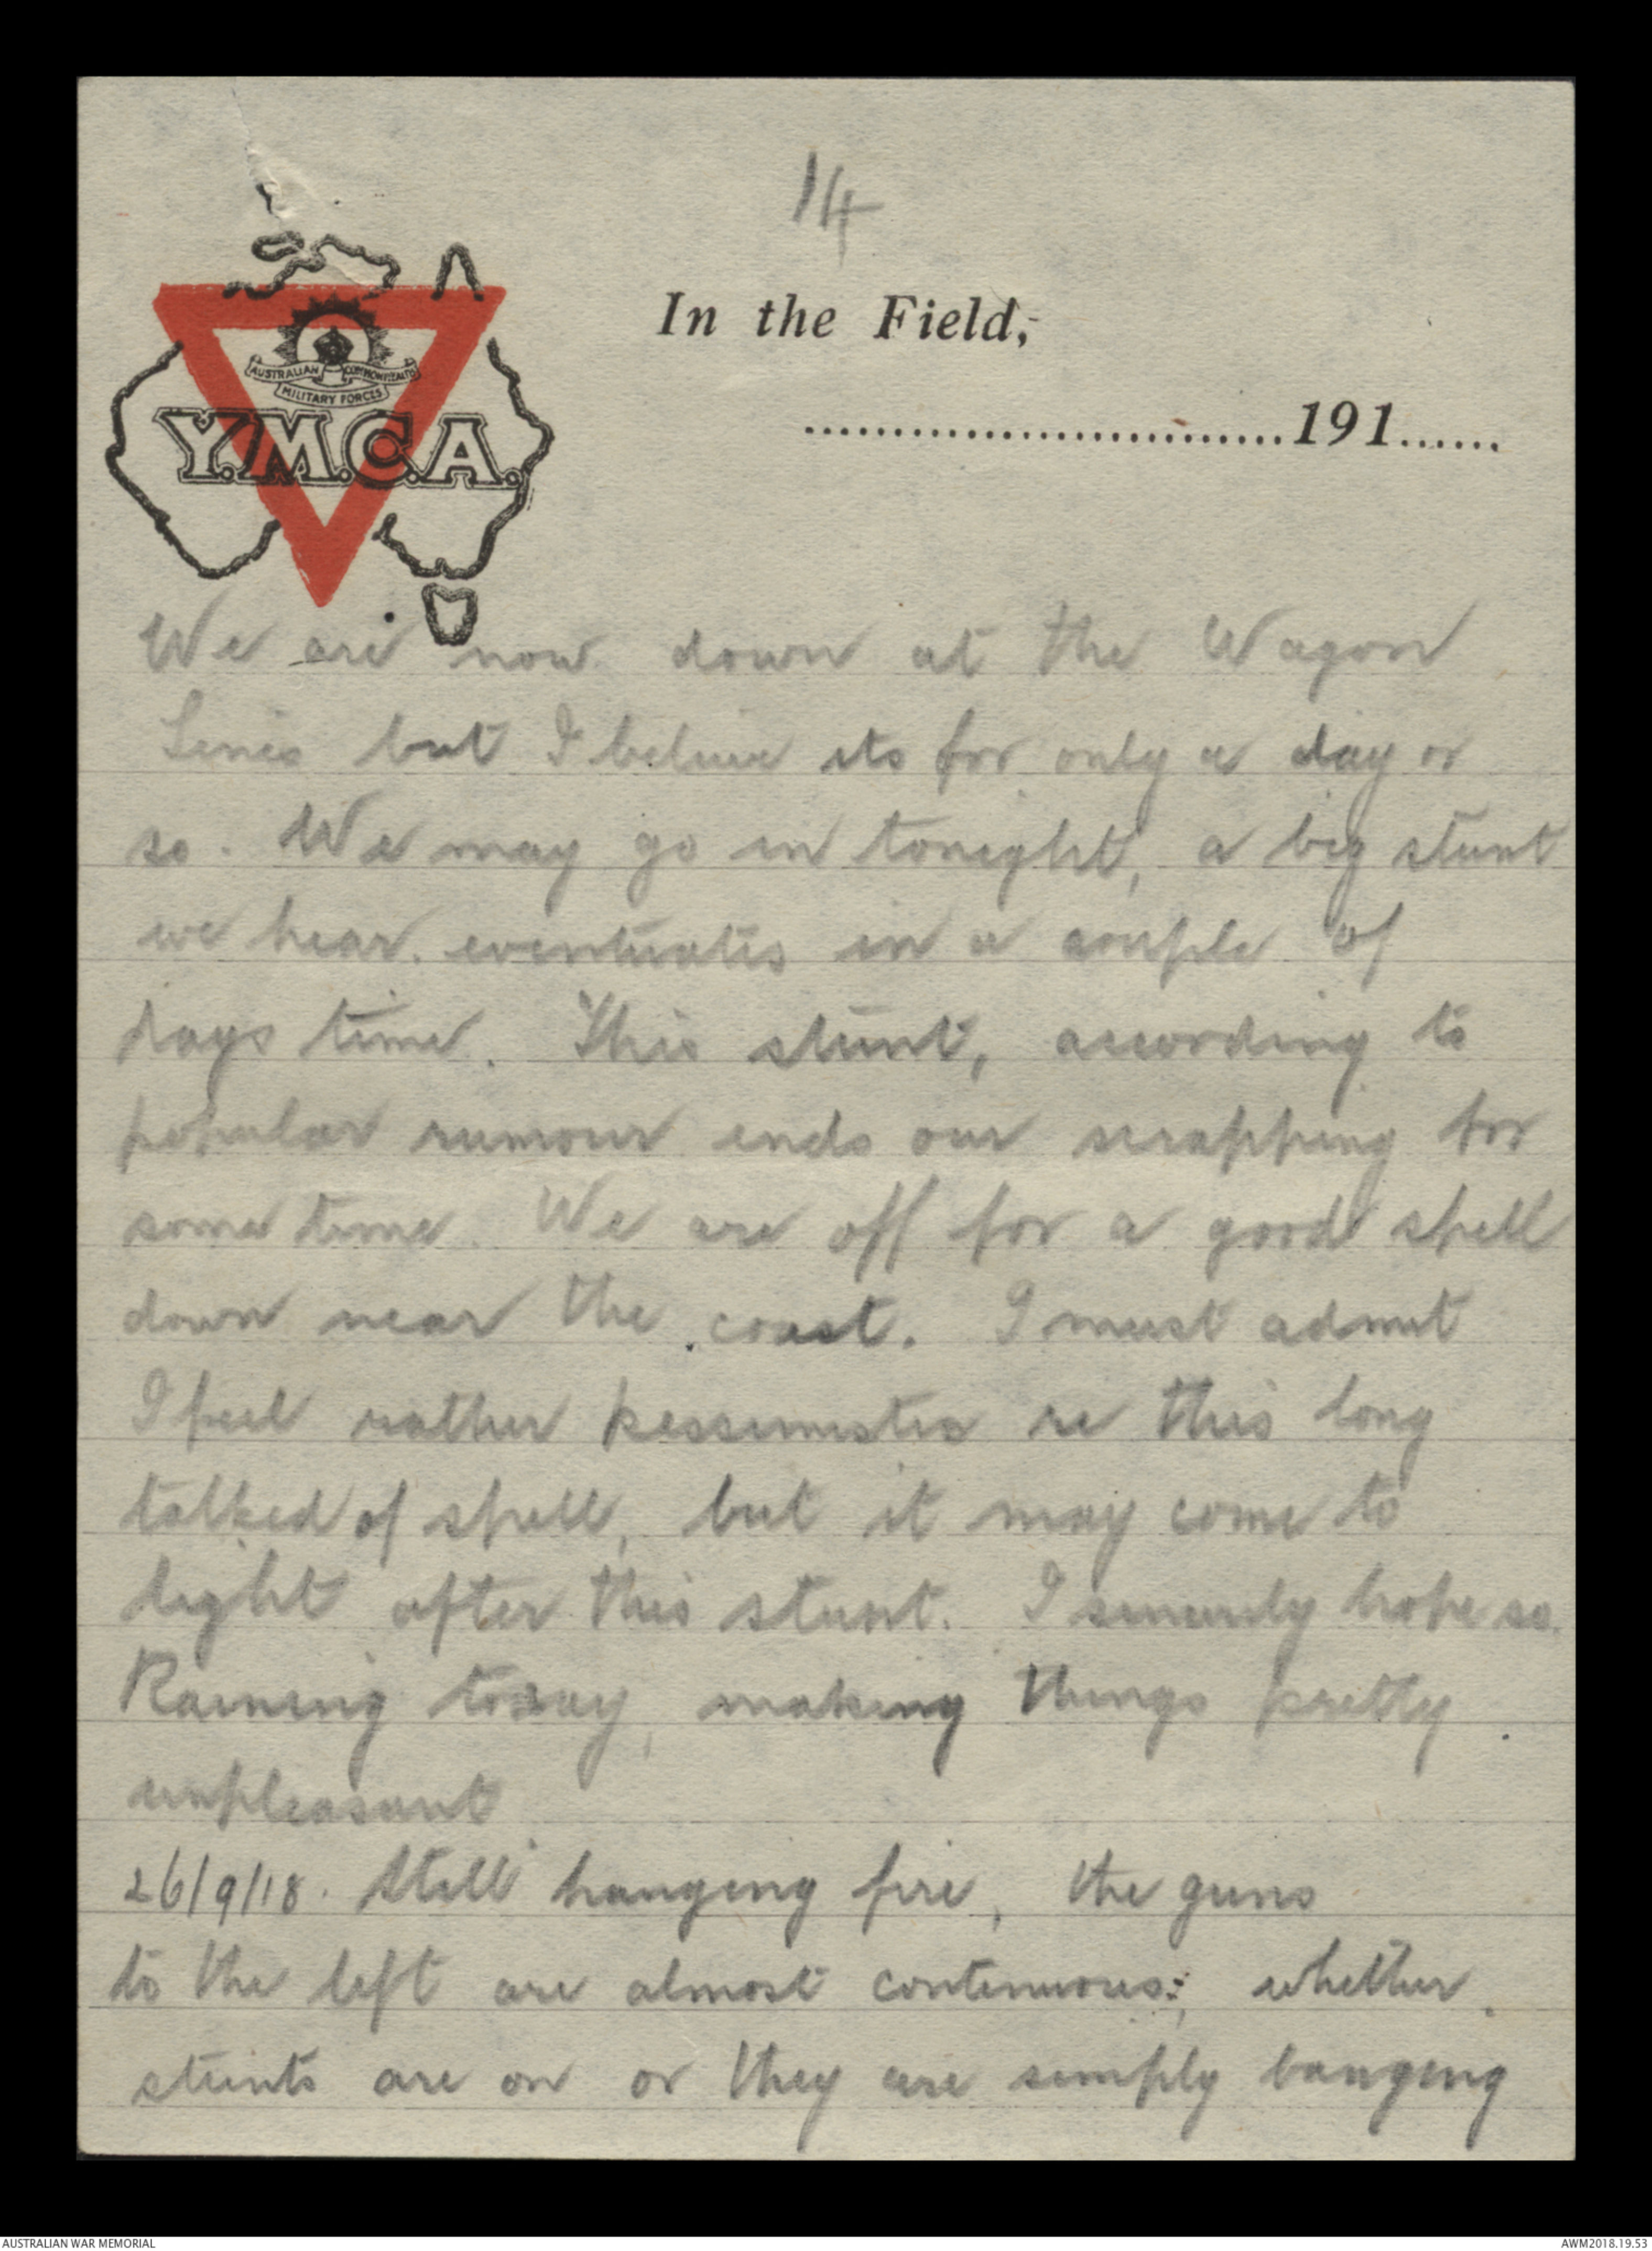 14
In the Field,
............................191......
AUSTRALIAN COMMONWEALTH
MILITARY FORCES
Y.M.C.A.
We are now down at the Wagon
Lines but I believe its for only a day or
so. We may go in tonight, a big stunt
we hear. eventuates in a couple of
days time. This stunt, according to
popular rumour ends our scrapping for
some time. We are off for a good spell
down near the coast. I must admit
I feel rather pessimistic re this long
talked of spell, but it may come to
light after this stunt. I sincerely hope so.
Raining today, making things pretty
unpleasant
26/9/18. Still hanging fire, the guns
to the left are almost continuous; whether
stunts are on or they are simply banging
AUSTRALIAN WAR MEMORIAL
AWM2018.19.53